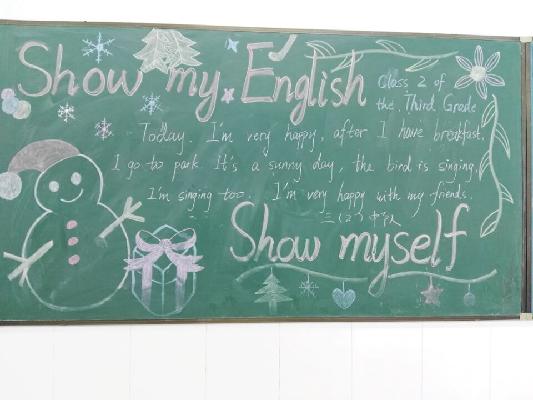 Show my English
Class 2 of
the Third Grade
Today. I'm very happy, after I have breakfast,
I go to park. It's a sunny day, the bird is singing,
I'm singing too. I'm very happy with my friends.
三(2)中队
Show myself